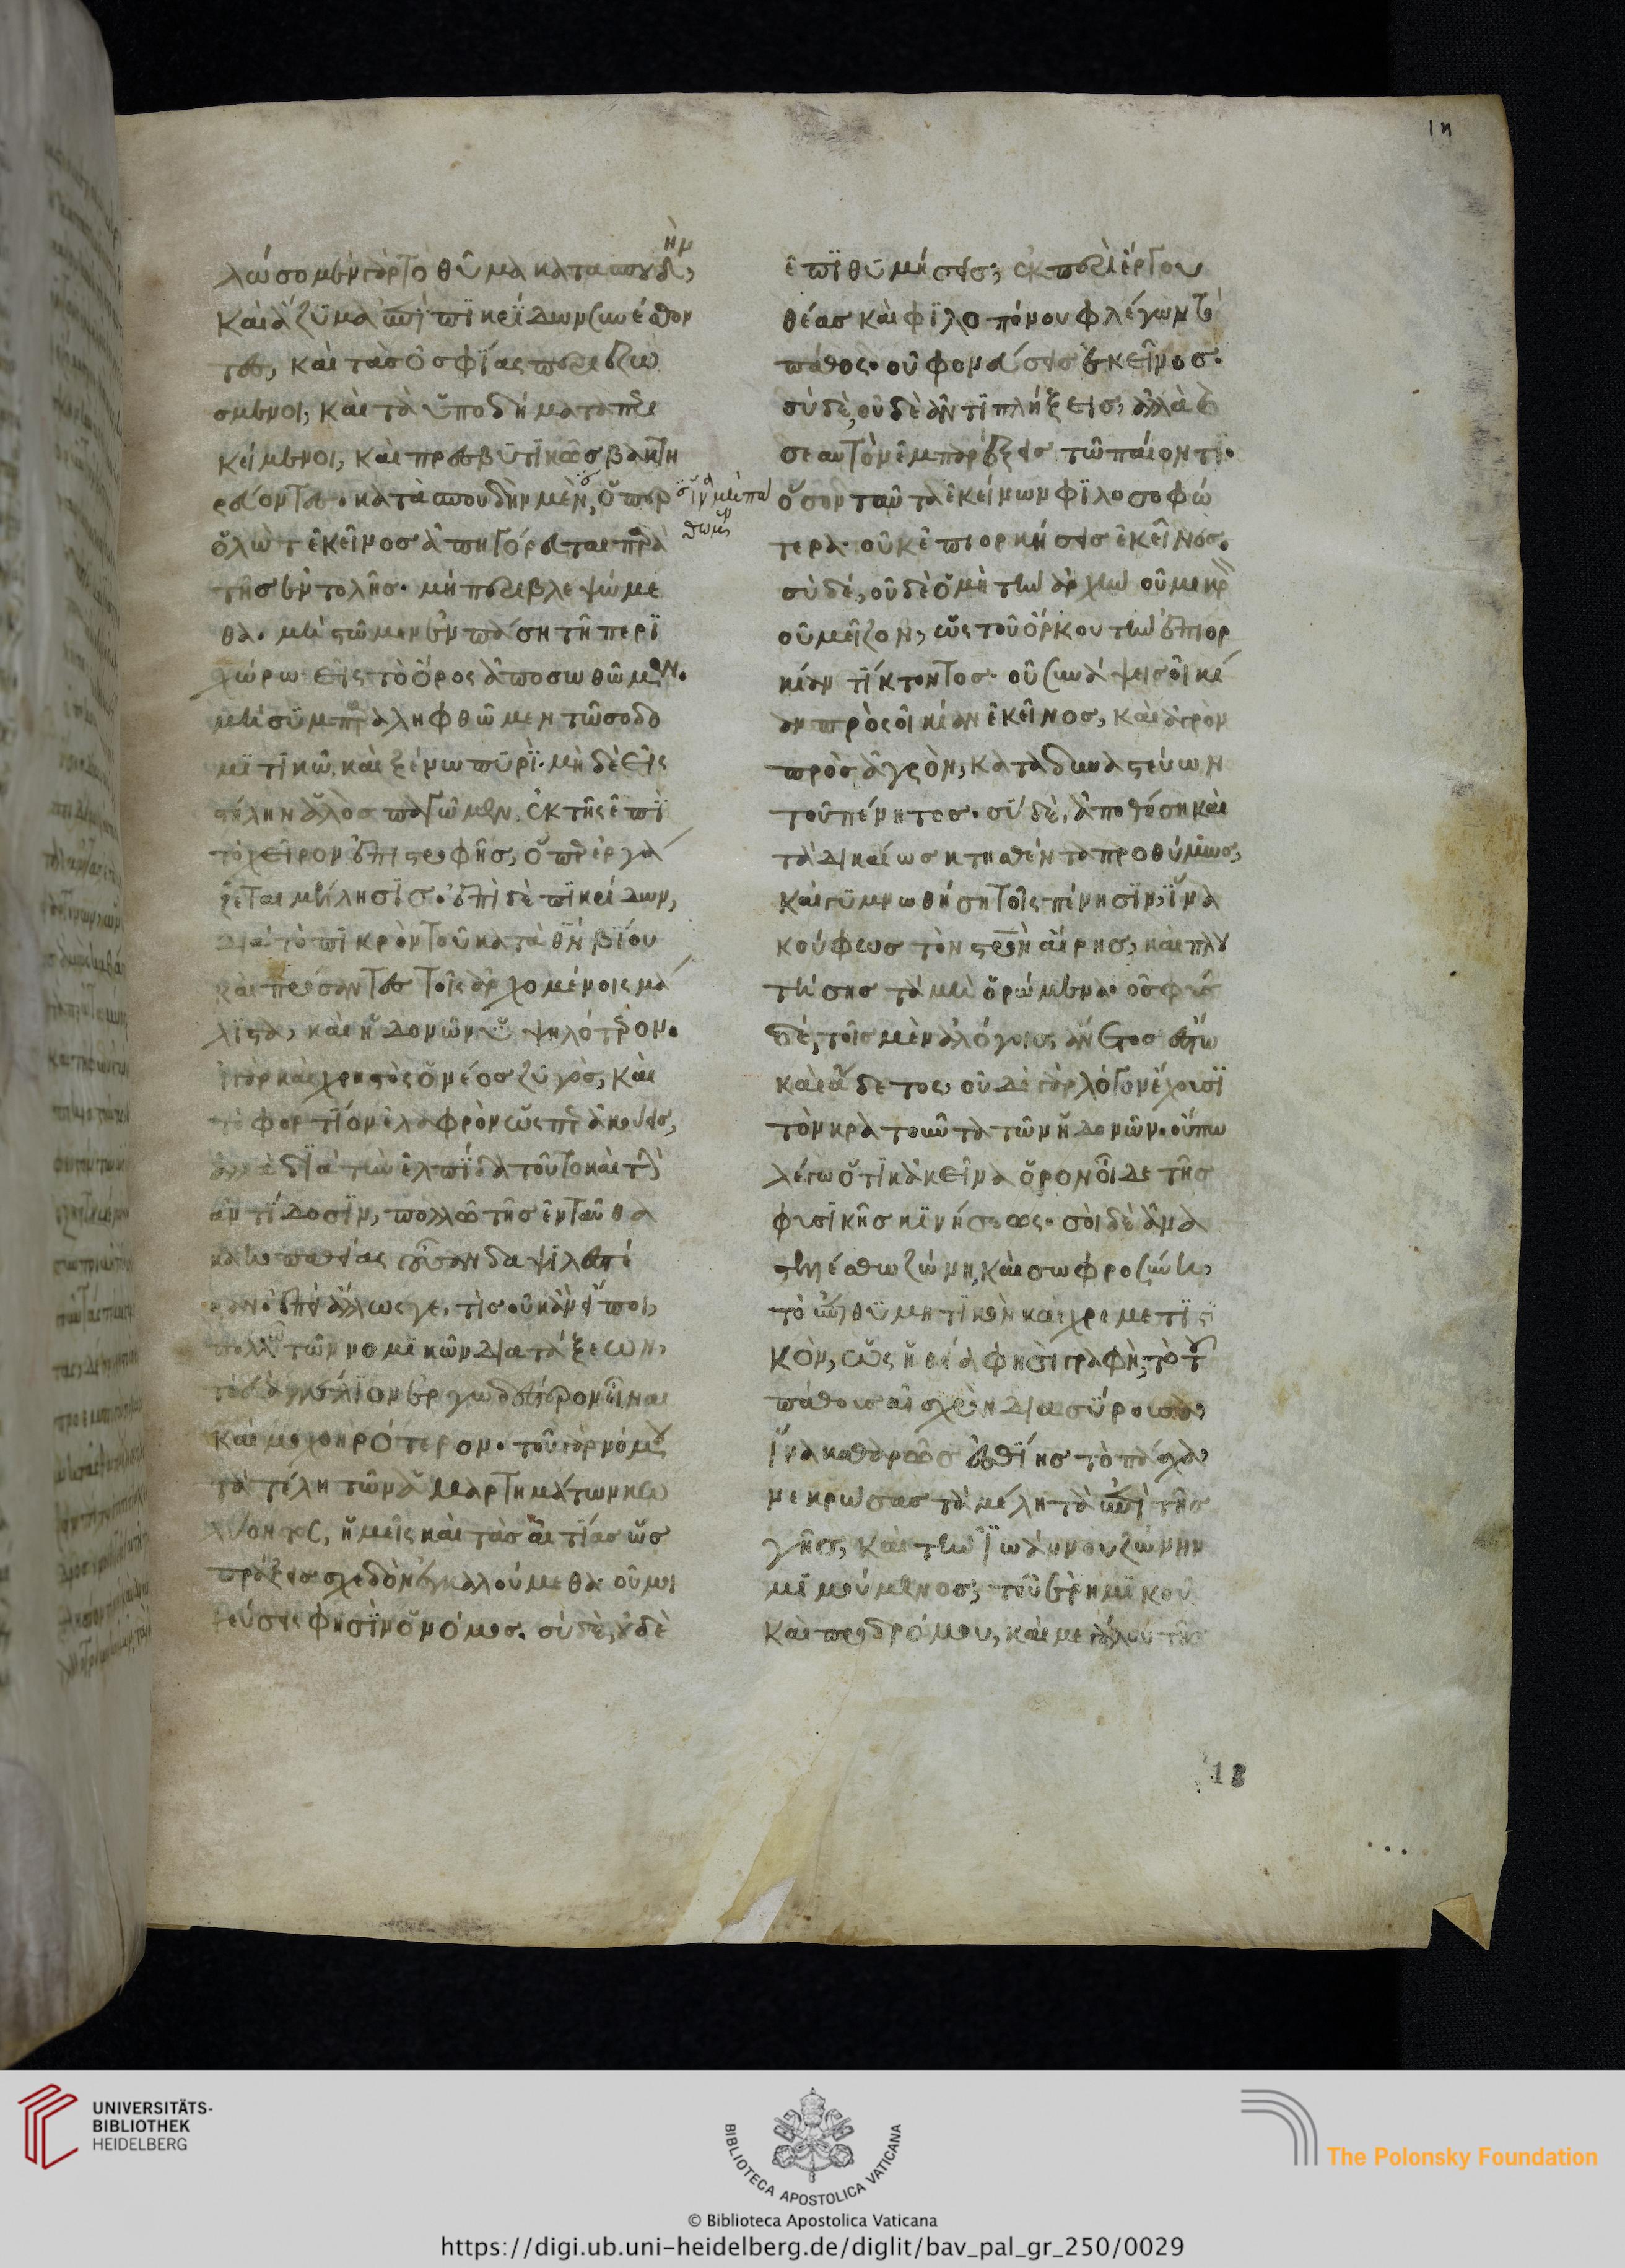 ιη
λώσομεν γὰρ τὸ θῦμα κατὰ σπουδὴν,
καὶ ἄζυμα ἐπὶ πικρίδων συνέσθον
τες, καὶ τὰς ὀσφύας περιεζω
σμένοι, καὶ τὰ ὑποδήματα περι
κείμενοι, καὶ πρεσβυτικῶς βακτη
ρεύοντες. κατὰ σπουδὴν μὲν, ὅπερ
ὅλως ἐκεῖνος ἀπηγόρευται παρὰ
τῆς ἐντολῆς. μὴ περιβλεψώμε
θα. μὴ στῶμεν ἐν πάσῃ τῇ περι
χώρῳ εἰς τὸ ὄρος ἀποσωθῶμεν.
μὴ συμπαραληφθῶμεν τῷ σοδο
μιτικῷ καὶ ξένῳ πυρί. μὴ δὲ εἰς
στήλην ἁλὸς παγῶμεν, ἐκ τῆς ἐπὶ
τὸ χεῖρον ἐπιστροφῆς, ὅπερ ἐργά
ζεται μέλησις. ἐπὶ δὲ πικρίδων,
διὰ τὸ πικρὸν τοῦ κατὰ θν βίου
καὶ προσάντες τοῖς ἀρχομένοις μά
λιστα, καὶ ἡδονῶν ὑψηλότερον.
εἰ γὰρ καὶ χρηστὸς ὁ νέος ζυγὸς, καὶ
τὸ φορτίον ἐλαφρὸν ὥσπερ ἀκούεις,
ἀλλὰ διὰ τὴν ἐλπίδα τοῦτο καὶ τὴν
ἀντίδοσιν, πολλῷ τῆς ἐνταῦθα
κακοπαθείας οὖσαν δαψιλεστέ
ραν. ἐπεὶ ἄλλως γε, τίς οὐκ ἂν εἴποι,
πολλῷ τῶν νομικῶν διατάξεων,
τὸ εὐαγγέλιον ἐργωδέστερον εἶναι
καὶ μοχθηρότερον. τοῦ γὰρ νόμου
τὰ τέλη τῶν ἁμαρτημάτων κω
λύοντος, ἡμεῖς καὶ τὰς αἰτίας ὡς
πράξεις σχεδὸν ἐγκαλούμεθα. οὐ μοι
χεύσεις φησὶν ὁ νόμος. σὺ δὲ, οὐδὲ
ἐπιθυμήσεις, ἐκ περιέργου
θέας καὶ φιλοπόνου φλέγων τὸ
πάθος. οὐ φονεύσεις ἐκεῖνος.
σὺ δὲ, οὐδὲ ἀντιπλήξεις, ἀλλὰ
σεαυτὸν ἐμπαρέξεις τῷ παίοντι.
ὅσον ταῦτα ἐκείνων φιλοσοφώ
τερα. οὐκ ἐπιορκήσεις ἐκεῖνος.
σὺ δέ, οὐδὲ ὀμῇ τὴν ἀρχὴν οὐ μικρὸν
οὐ μεῖζον, ὡς τοῦ ὅρκου τὴν ἐπιορ
κίαν τίκτοντος. οὐ συνάψεις οἰκί
αν πρὸς οἰκίαν ἐκεῖνος, καὶ ἀγρὸν
πρὸς ἀγρὸν, καταδυναστεύων
τοῦ πένητος. σὺ δὲ, ἀποθήσῃ καὶ
τὰ δικαίως κτηθέντα προθύμως,
καὶ γυμνωθήσῃ τοῖς πένησιν, ἵνα
κούφως τὸν στρὸν αἴρῃς, καὶ πλου
τήσῃς τὰ μὴ ὁρώμενα. ὀσφὺς
δὲ, τοῖς μὲν ἀλόγοις ἄνετος ἔστω
καὶ ἄδετος, οὐδὲ γὰρ λόγον ἔχουσι
τὸν κρατοῦντα τῶν ἡδονῶν. οὔπω
λέγω ὅτι κἀκεῖνα ὅρον οἶδε τῆς
φυσικῆς κινήσεως. σοὶ δὲ ἅμα
στηλέσθω ζώνῃ, καὶ σωφροσύνῃ,
τὸ ἐπιθυμητικὸν καὶ χρεμετιστι
κὸν, ὥς ἡ θεία φησὶ γραφὴ, τὸ τοῦ
πάθους αἰσχρὸν διασύρουσα,
ἵνα καθαρῶς ἐσθίῃς τὸ πάσχα,
νεκρώσας τὰ μέλη τὰ ἐπὶ τῆς
γῆς, καὶ τὴν Ἰωάννου ζώνην
μιμούμενος, τοῦ ἐρημικοῦ
καὶ προδρόμου, καὶ μεγάλου τῆς
18
UNIVERSITÄTS-
BIBLIOTHEK
HEIDELBERG
BIBLIOTECA APOSTOLICA VATICANA
The Polonsky Foundation
© Biblioteca Apostolica Vaticana
https://digi.ub.uni-heidelberg.de/diglit/bav_pal_gr_250/0029